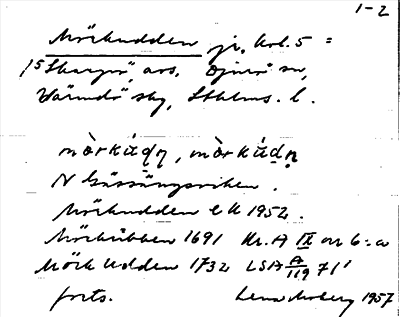 1-2
Mörkudden jr, kol. 5 =
15 Skarpö, avs. Djurö sn,
Värmdö skg, Sthlms. l.
mòrkúdn, mòrkúdn
N Gässängsviken.
Mörkudden ek 1952.
Mörkubben 1691 Kr. A IX or 6:a
Mörk Udden 1732 LSA A/119 7l'
forts. Lena Moberg 1957